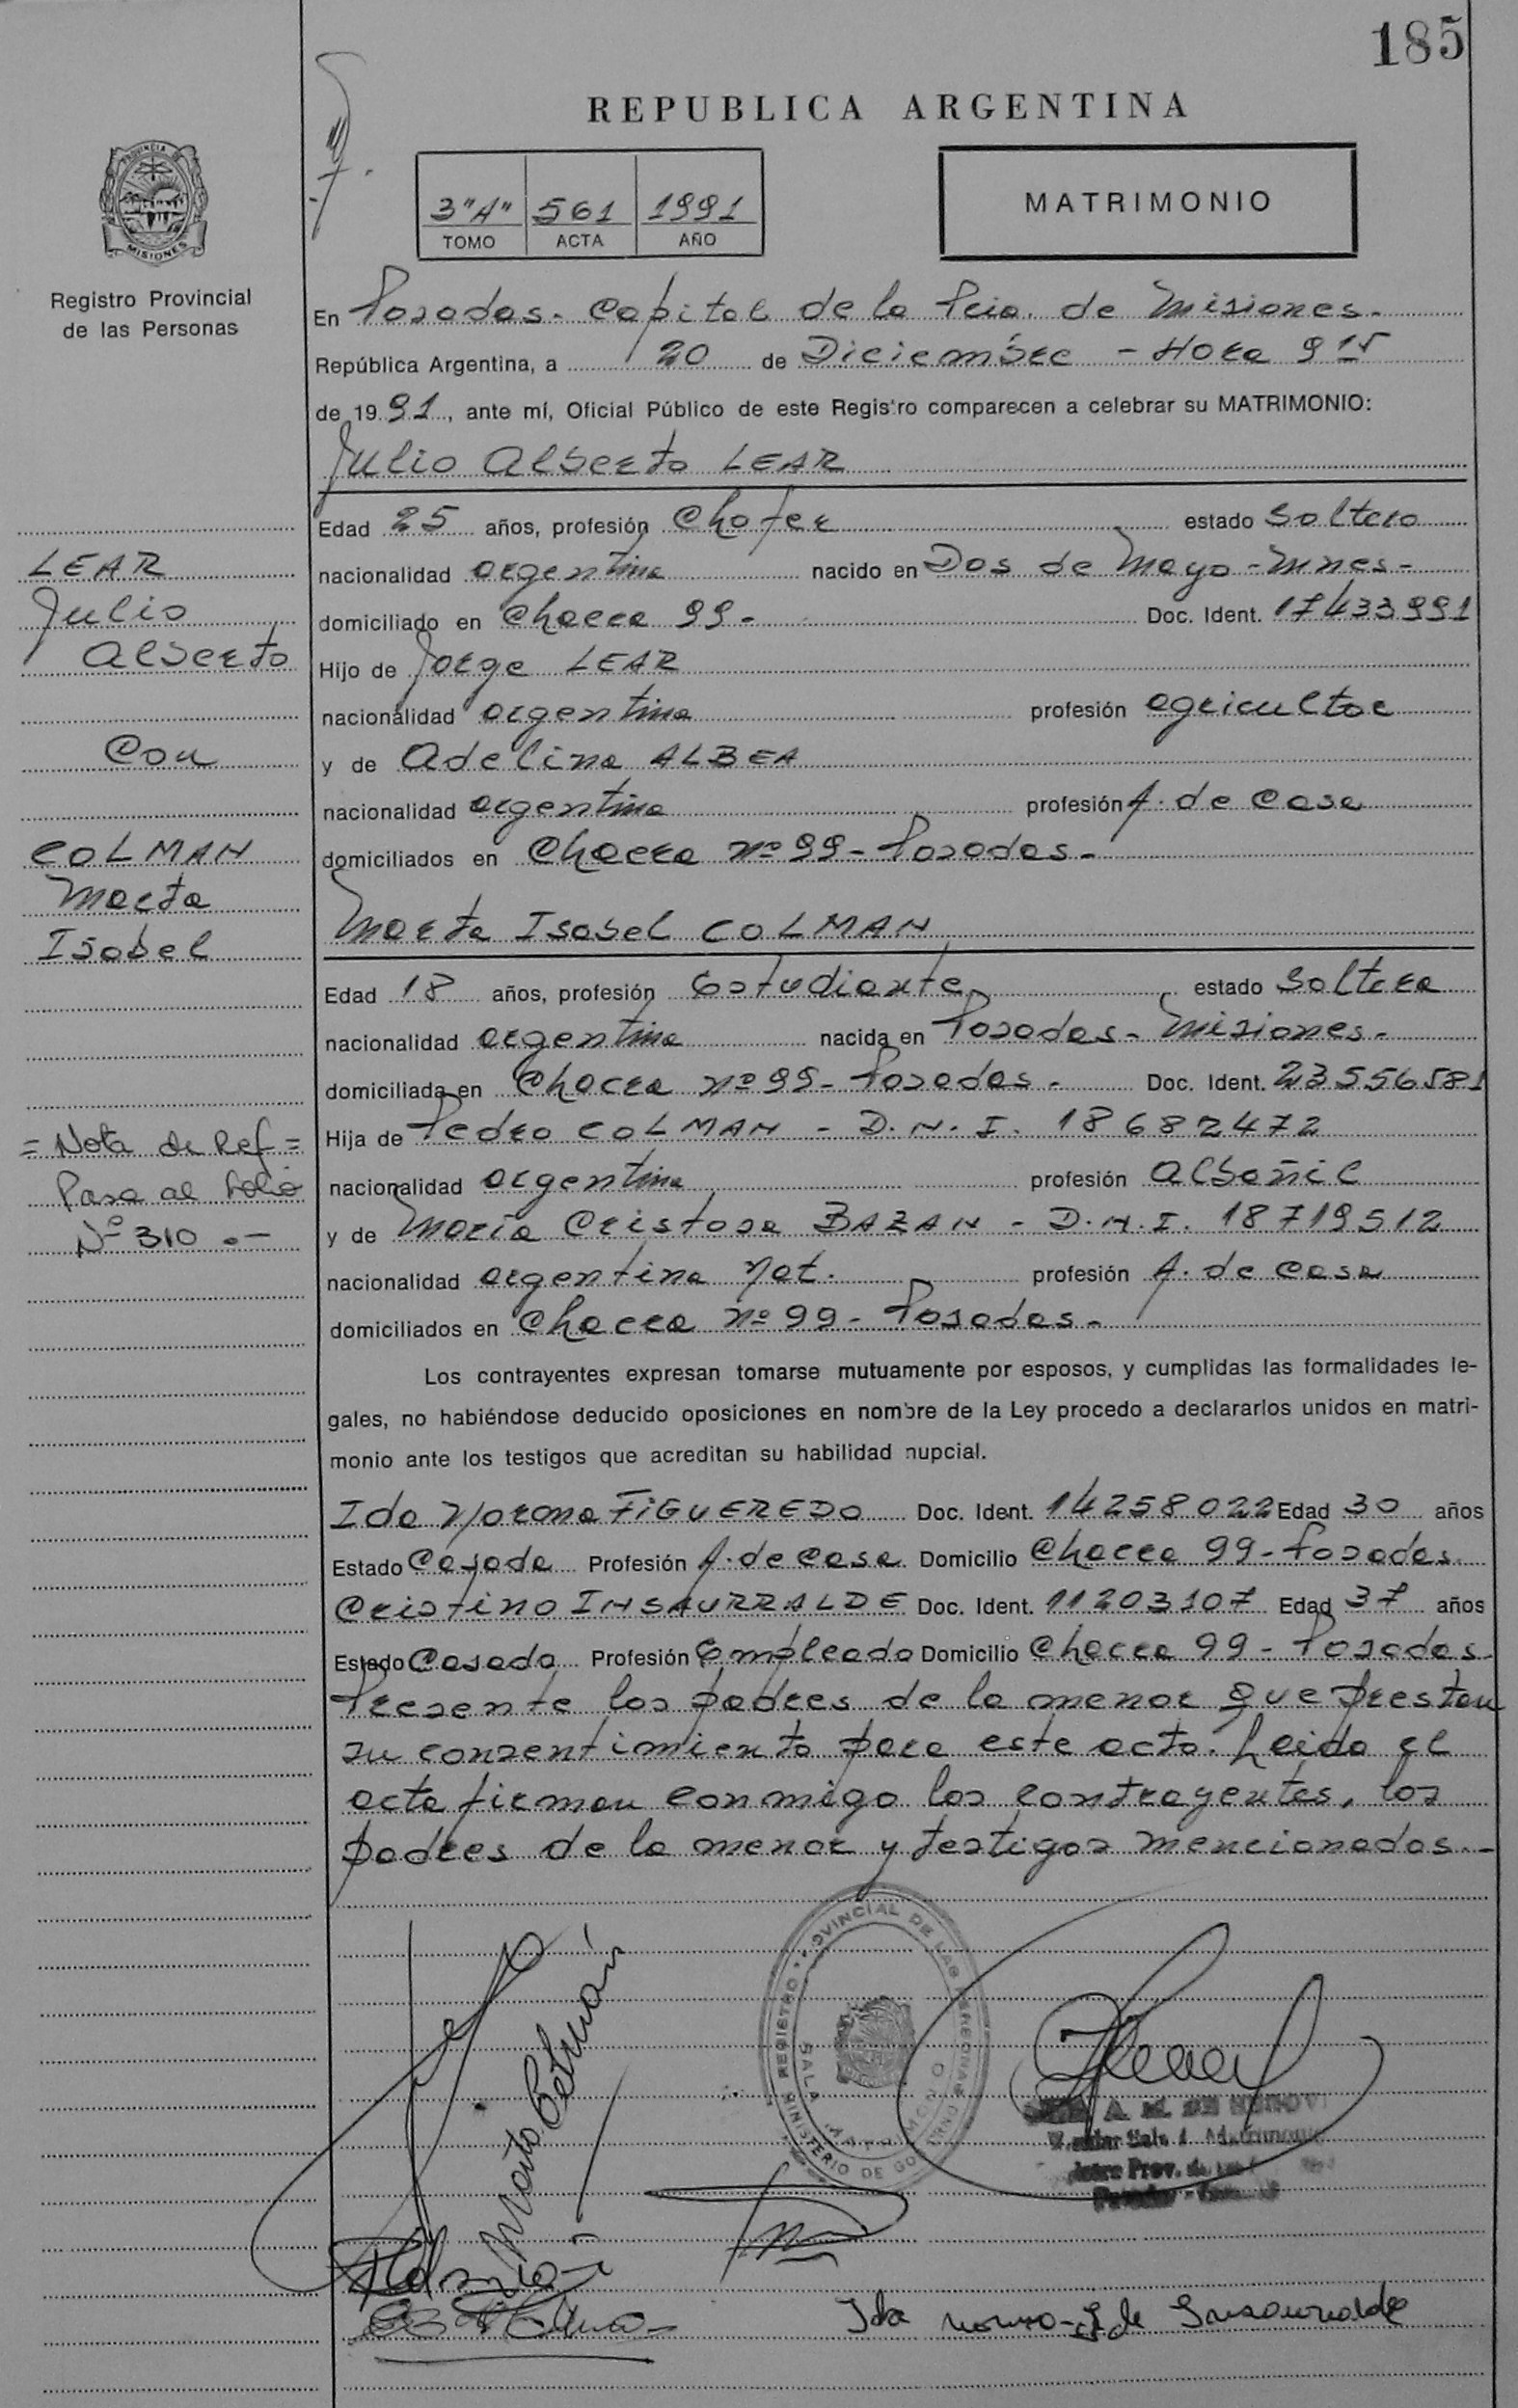 185
REPUBLICA ARGENTINA
3"A" 561 1991
TOMO ACTA AÑO
MATRIMONIO
PROVINCIA DE MISIONES
Registro Provincial
de las Personas
En Posadas - Capital de la Pcia. de Misiones -
República Argentina, a 20 de Diciembre - Hora 9 15
de 1991, ante mí, Oficial Público de este Registro comparecen a celebrar su MATRIMONIO:
Julio Alberto LEAR
Edad 25 años, profesión Chofer estado Soltero
nacionalidad argentina nacido en Dos de Mayo - Mnes -
domiciliado en Chacra 99 - Doc. Ident. 17433991
Hijo de Jorge LEAR
nacionalidad argentina profesión agricultor
y de Adelina ALBEA
nacionalidad argentina profesión A. de Casa
domiciliados en Chacra nº 99 - Posadas -
Marta Isabel COLMAN
Edad 18 años, profesión Estudiante estado Soltera
nacionalidad argentina nacida en Posadas - Misiones -
domiciliada en Chacra nº 99 - Posadas - Doc. Ident. 23556581
Hija de Pedro COLMAN - D.N.I. 18682472
nacionalidad argentina profesión Albañil
y de María Cristosa BAZAN - D.N.I. 18719512
nacionalidad argentina Nat. profesión A. de Casa
domiciliados en Chacra nº 99 - Posadas -
LEAR
Julio
Alberto
Con
COLMAN
Marta
Isabel
= Nota de Ref =
Pasa al folio
Nº 310 .-
Los contrayentes expresan tomarse mutuamente por esposos, y cumplidas las formalidades le-
gales, no habiéndose deducido oposiciones en nombre de la Ley procedo a declararlos unidos en matri-
monio ante los testigos que acreditan su habilidad nupcial.
Ida Norma FIGUEREDO Doc. Ident. 14258022 Edad 30 años
Estado Casada Profesión A. de Casa Domicilio Chacra 99 - Posadas
Cristino INSAURRALDE Doc. Ident. 11203107 Edad 37 años
Estado Casado Profesión Empleado Domicilio Chacra 99 - Posadas
Presente los padres de la menor que prestan
su consentimiento para este acto. Leida el
acta firman conmigo los contrayentes, los
padres de la menor y testigos mencionados.-
REGISTRO PROVINCIAL DE LAS PERSONAS
MINISTERIO DE GOBIERNO
SALA
A. M. DE
Posadas
Ida Norma F de Insaurralde